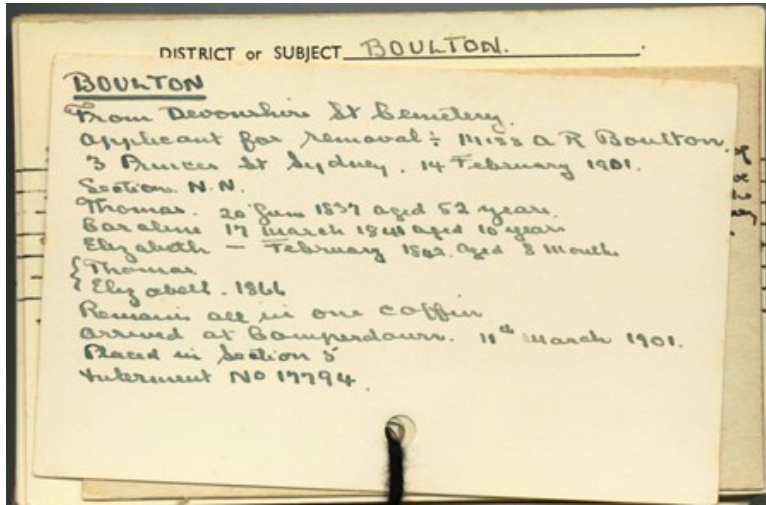 DISTRICT or SUBJECT BOULTON.
BOULTON
From Devonshire St Cemetery.
Applicant for removal :- Miss A R Boulton.
3 Princes St Sydney. 14 February 1901.
Section. N.N.
Thomas. 20 June 1837 aged 52 years.
Caroline 17 March 1841 aged 10 years
Elizabeth — February aged 8 Months
{ Thomas
{ Elizabeth. 1866
Remains all in one coffin
arrived at Camperdown. 11th March 1901.
Placed in Section 5
Interment No 17794.